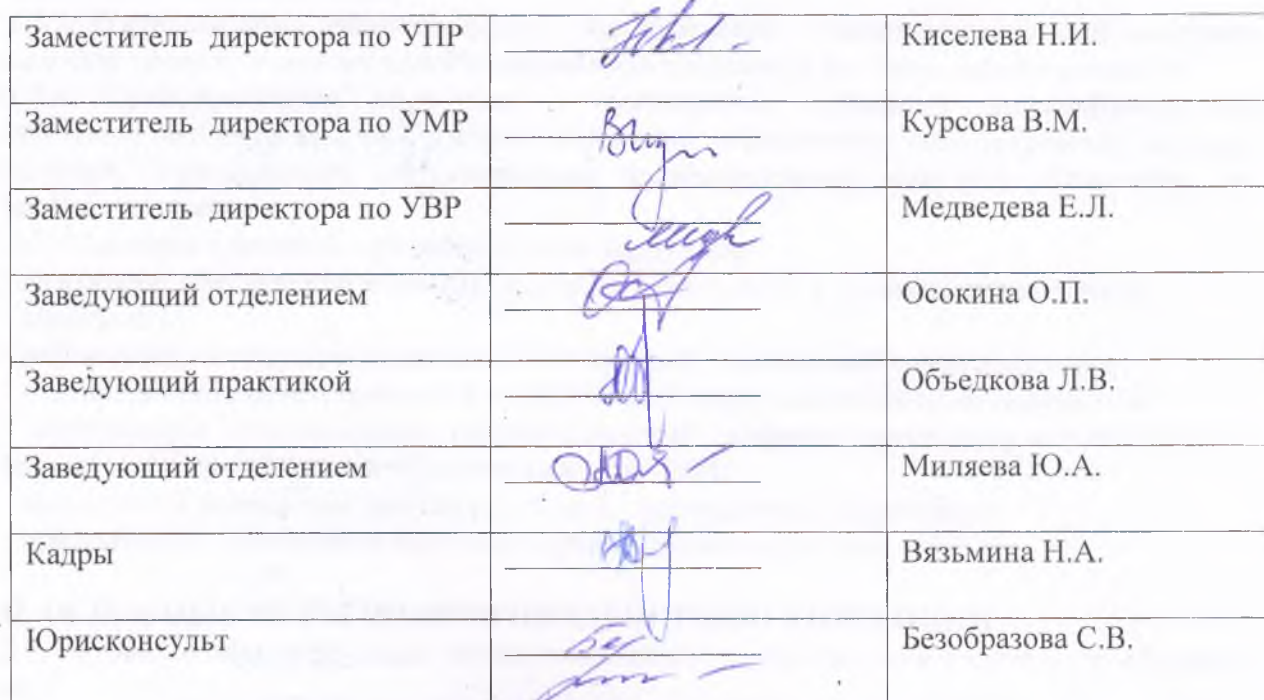 Заместитель директора по УПР Киселева Н.И.
Заместитель директора по УМР Курсова В.М.
Заместитель директора по УВР Медведева Е.Л.
Заведующий отделением Осокина О.П.
Заведующий практикой Объедкова Л.В.
Заведующий отделением Миляева Ю.А.
Кадры Вязьмина Н.А.
Юрисконсульт Безобразова С.В.